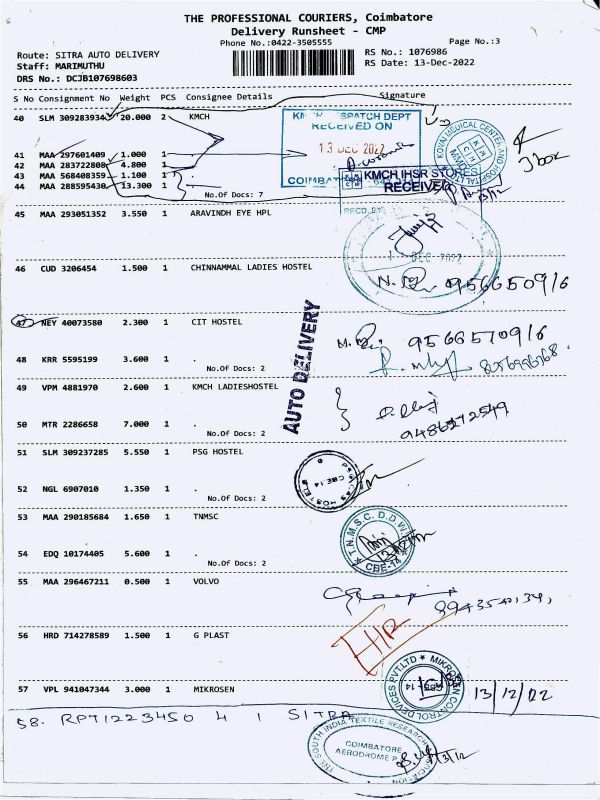 THE PROFESSIONAL COURIERS, Coimbatore
Delivery Runsheet - CMP
Phone No.:0422-3505555
Page No.:3
Route: SITRA AUTO DELIVERY
RS No.: 1076986
Staff: MARIMUTHU
RS Date: 13-Dec-2022
DRS No.: DCJB107698603
S No Consignment No Weight PCS Consignee Details Signature
40 SLM 309283934 20.000 2 KMCH
KMCH DESPATCH DEPT
RECEIVED ON
13 DEC 2022
COIMBATORE
KOVAI MEDICAL CENTER AND HOSPITAL
KMCH
3 box
41 MAA 297601409 1.000 1
42 MAA 283722808 4.800 1
43 MAA 568408359 1.100 1
44 MAA 288595430 13.300 1
No.Of Docs: 7
KMCH IHSR STORES
RECEIVED
13/12
45 MAA 293051352 3.550 1 ARAVINDH EYE HPL
RECD.BY
1 DEC 2022
46 CUD 3206454 1.500 1 CHINNAMMAL LADIES HOSTEL
9566650916
47 NEY 40073580 2.300 1 CIT HOSTEL
9566570916
AUTO DELIVERY
48 KRR 5595199 3.600 1 .
No.Of Docs: 2
49 VPM 4881970 2.600 1 KMCH LADIESHOSTEL
50 MTR 2286658 7.000 1 .
No.Of Docs: 2
9486272549
51 SLM 309237285 5.550 1 PSG HOSTEL
CBE 14
52 NGL 6907010 1.350 1 .
No.Of Docs: 2
53 MAA 290185684 1.650 1 TNMSC
T.N.M.S.C. D.D.W
CBE-14
54 EDQ 10174405 5.600 1 .
No.Of Docs: 2
55 MAA 296467211 0.500 1 VOLVO
56 HRD 714278589 1.500 1 G PLAST
57 VPL 941047344 3.000 1 MIKROSEN
MIKROSEN CONTROL DEVICES PVT.LTD
CBE-14
13/12/02
58. RPT1223450 4 1 SITRA
THE SOUTH INDIA TEXTILE RESEARCH ASSOCIATION
COIMBATORE
AERODROME P.
13/12